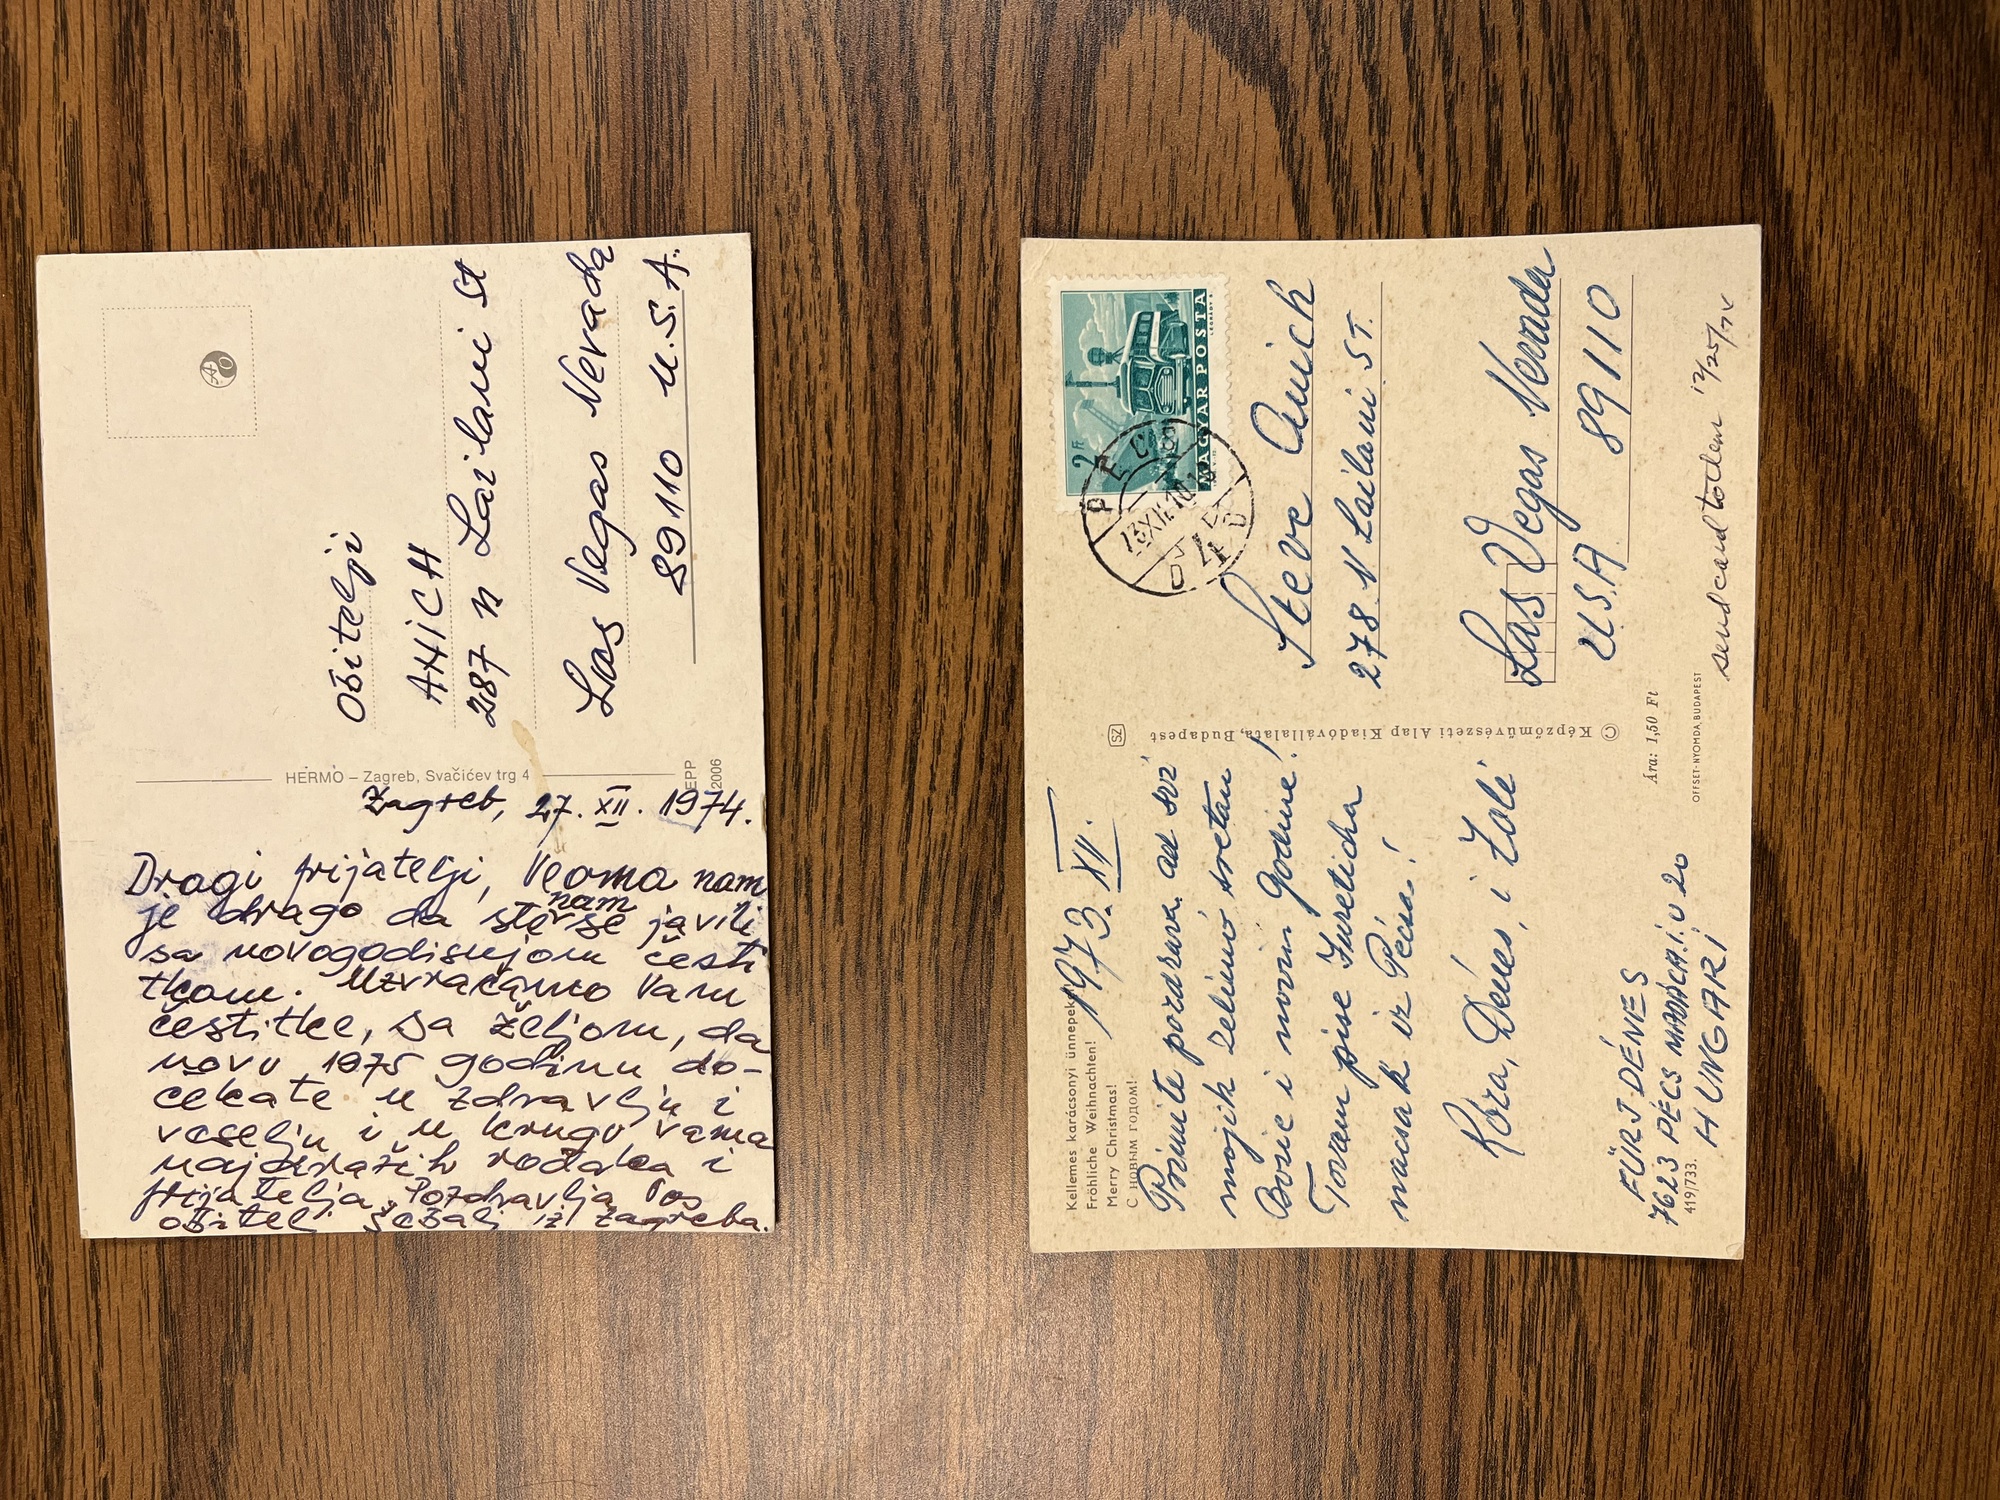 Obitelji
ANICH
287 n Lai lani St
Las Vegas Nevada
89110 U.S.A.
HERMO – Zagreb, Svačićev trg 4
EPP
2006
Zagreb, 27. XII. 1974.
Dragi prijatelji, Veoma nam
je drago da ste nam se javili
sa novogodisnjom česti
tkom. Uzvraćamo Vam
čestitke, sa željom, da
novu 1975 godinu do-
čekate u zdravlju i
veselju i u krugu vama
najdražih rođaka i
prijatelja. Pozdravlja Vas
obitelj iz Zagreba.
Kellemes karácsonyi ünnepeket
Fröhliche Weihnachten!
Merry Christmas!
С НОВЫМ ГОДОМ!
1973. XII.
Primite pozdrava od svi
mojih želimo sretan
Bozic i novu Godinu!
Tovam pise
iz Pećua!
Róza, Dénes, i Zoli
FÜRJ DÉNES
7623 PÉCS MADÁCH. I. U 20
HUNGARI
419/733.
SZ
© Képzőművészeti Alap Kiadóvállalata, Budapest
Ára: 1,50 Ft
OFFSET-NYOMDA, BUDAPEST
2 Ft
MAGYAR POSTA
PÉCS
Steve Anich
278 N Lailani ST.
Las Vegas Nevada
USA 89110
send card to them 12/25/74